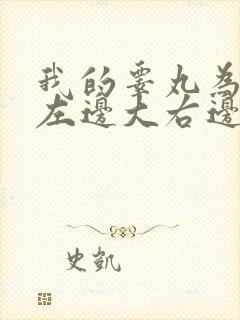 我的睾丸為
左邊大右邊
史凱